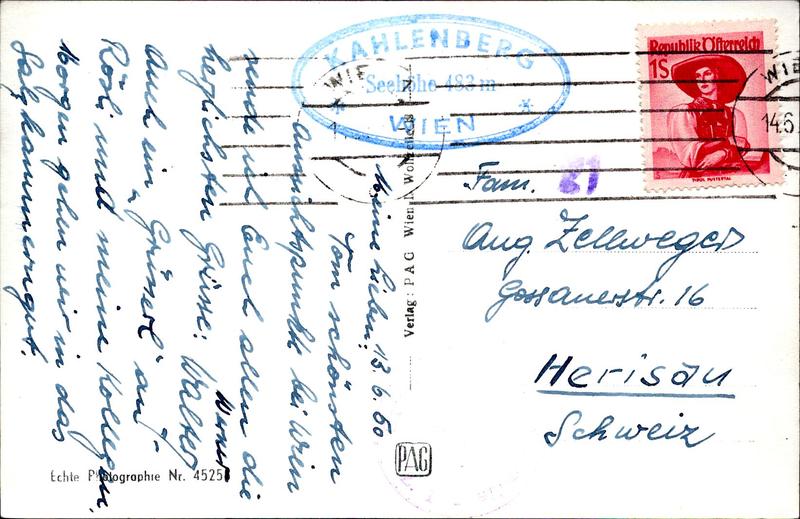 KAHLENBERG
Seehöhe 483 m
WIEN
Republik Österreich
1S
WIE
WIE
14.6
Meine Lieben! 13.6.50
Vom schönsten
Aussichtspunkte bei Wien
sende ich Euch allen die
herzlichsten Grüsse: Walter
Werner
Auch ein "Grüsserl" an
Rösli und meine Kollegen.
Morgen gehen wir in das
Salzkammergut.
Fam. 21
Aug. Zellweger
Gossauerstr. 16
Herisau
Schweiz
Verlag: PAG Wien
PAG
Echte Photographie Nr. 4525